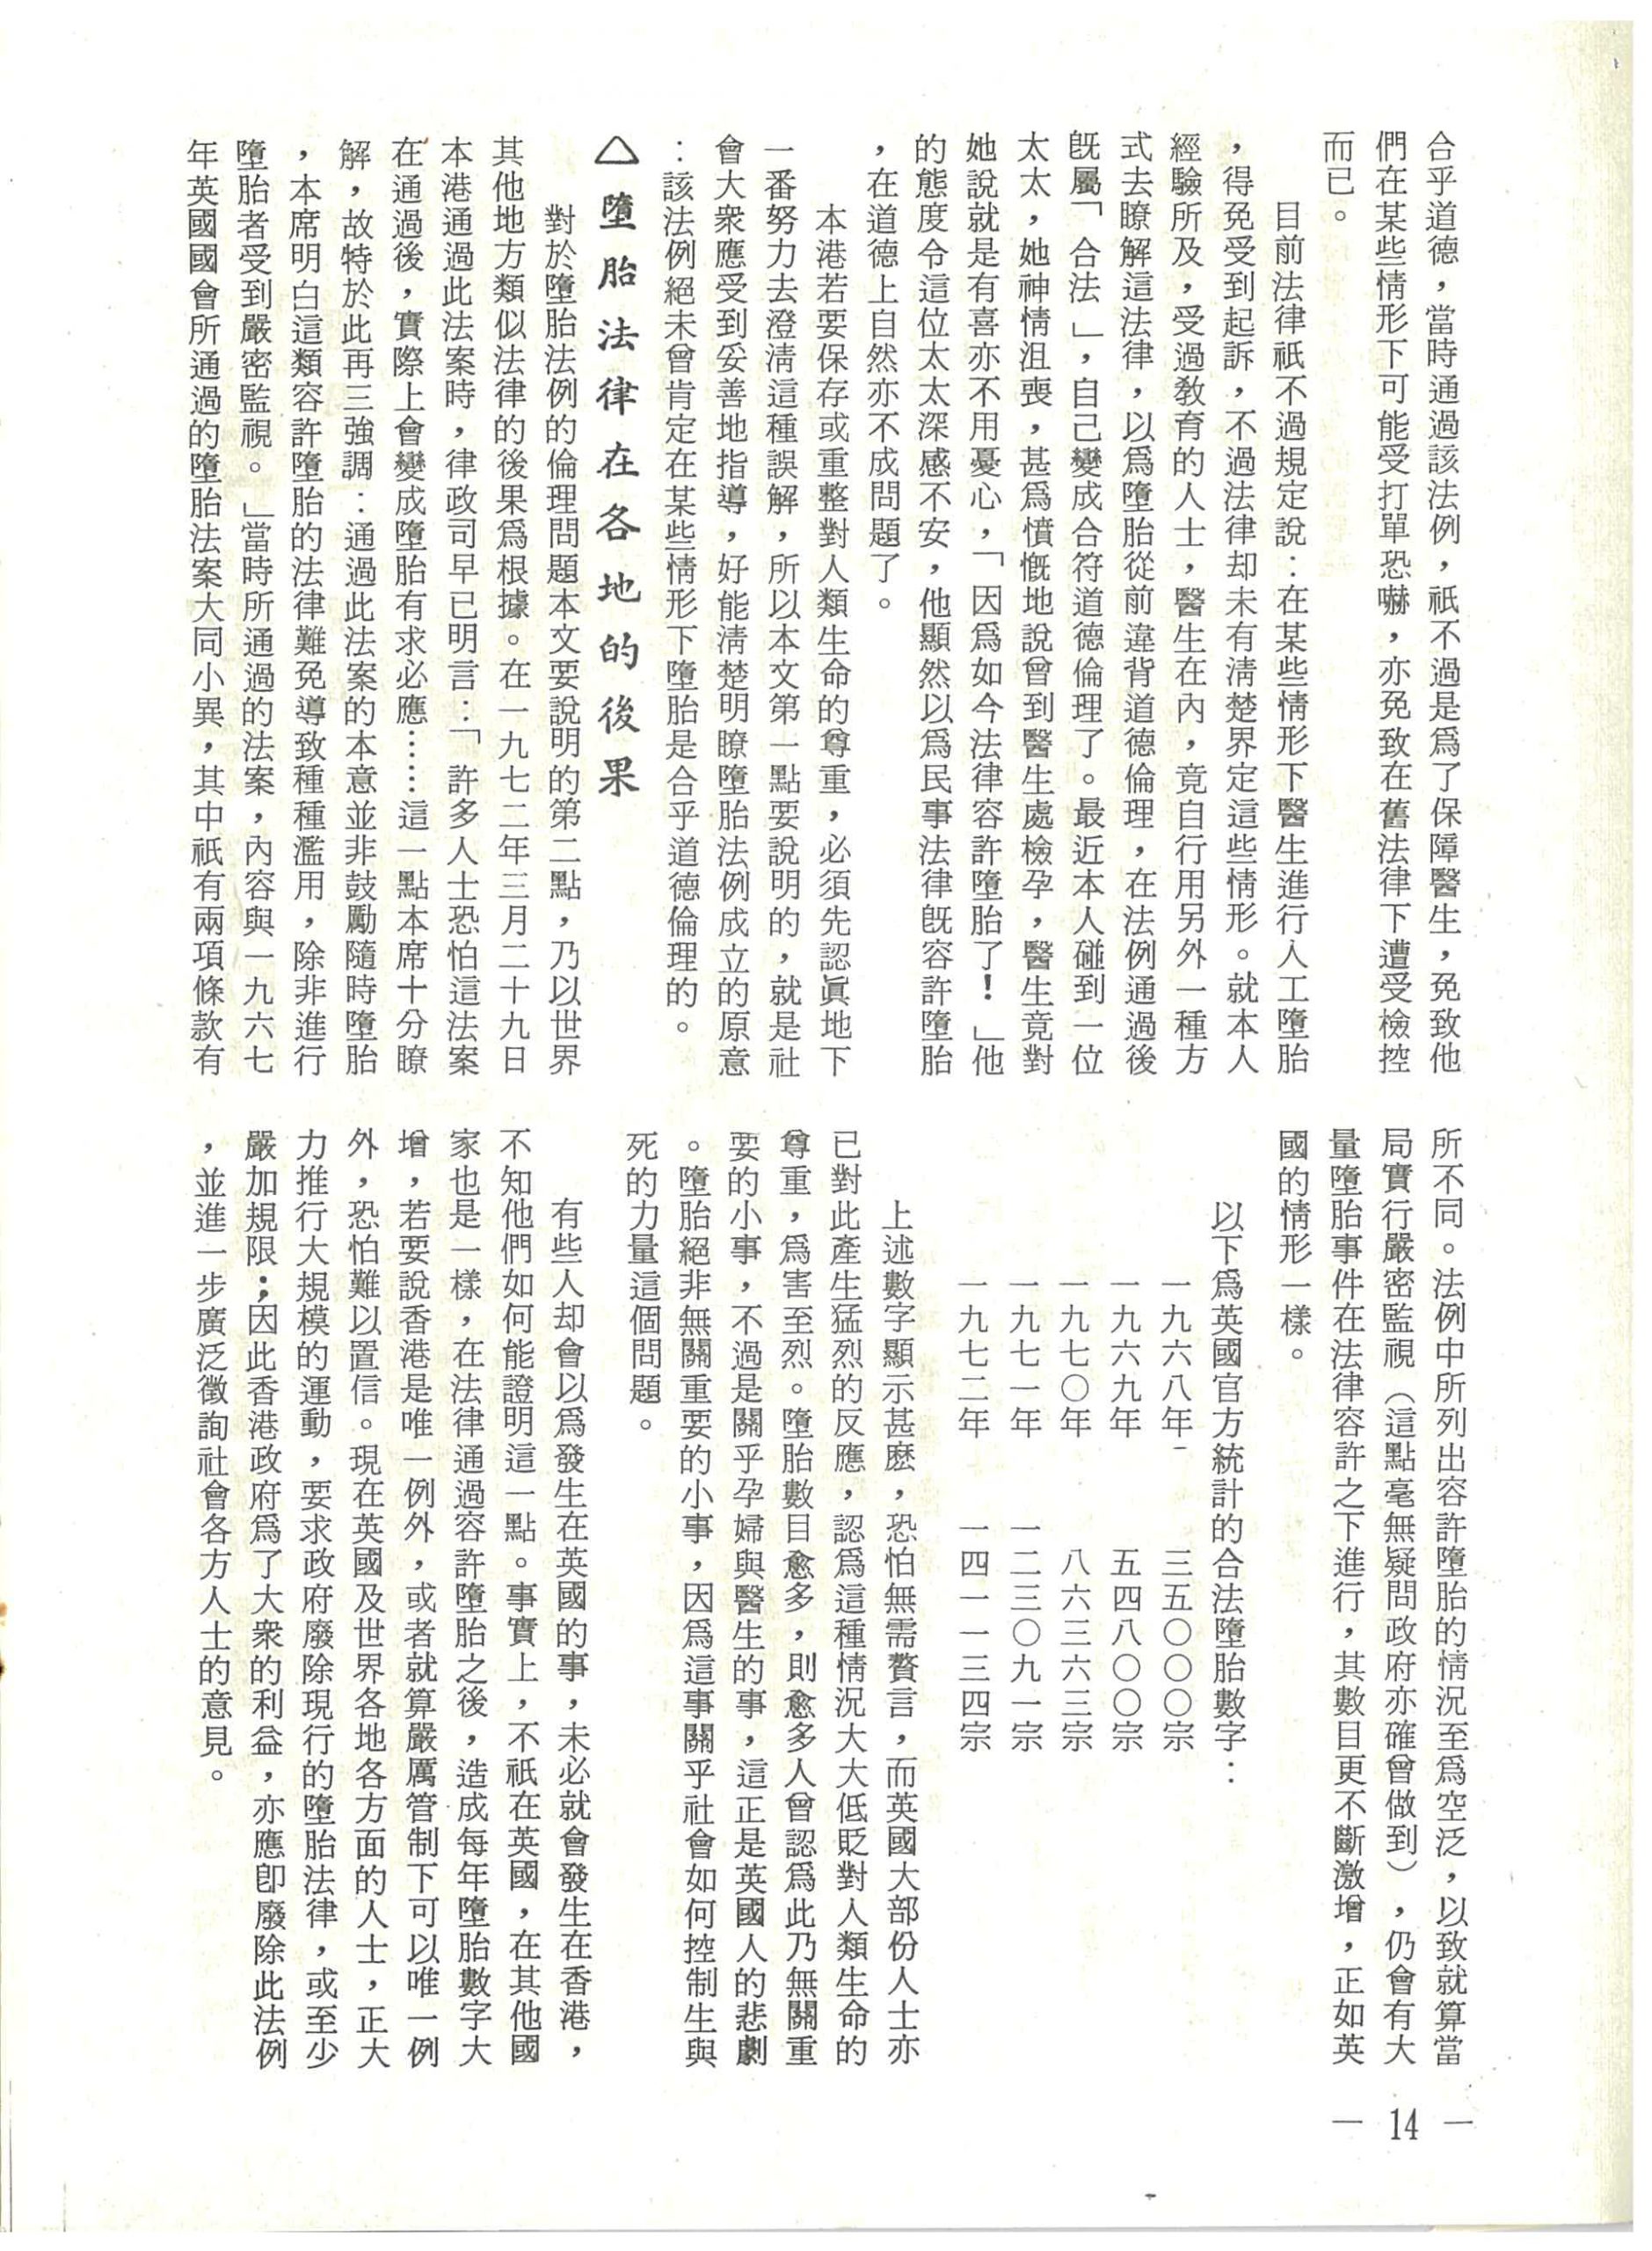 合乎道德，當時通過該法例，祇不過是爲了保障醫生，免致他
們在某些情形下可能受打單恐嚇，亦免致在舊法律下遭受檢控
而已。
目前法律祇不過規定說：在某些情形下醫生進行人工墮胎
，得免受到起訴，不過法律却未有淸楚界定這些情形。就本人
經驗所及，受過教育的人士，醫生在內，竟自行用另外一種方
式去瞭解這法律，以爲墮胎從前違背道德倫理，在法例通過後
旣屬「合法」，自己變成合符道德倫理了。最近本人碰到一位
太太，她神情沮喪，甚爲憤慨地說曾到醫生處檢孕，醫生竟對
她說就是有喜亦不用憂心，「因爲如今法律容許墮胎了！」他
的態度令這位太太深感不安，他顯然以爲民事法律旣容許墮胎
，在道德上自然亦不成問題了。
本港若要保存或重整對人類生命的尊重，必須先認眞地下
一番努力去澄淸這種誤解，所以本文第一點要說明的，就是社
會大衆應受到妥善地指導，好能淸楚明瞭墮胎法例成立的原意
：該法例絕未曾肯定在某些情形下墮胎是合乎道德倫理的。
△墮胎法律在各地的後果
對於墮胎法例的倫理問題本文要說明的第二點，乃以世界
其他地方類似法律的後果爲根據。在一九七二年三月二十九日
本港通過此法案時，律政司早已明言：「許多人士恐怕這法案
在通過後，實際上會變成墮胎有求必應……這一點本席十分瞭
解，故特於此再三強調：通過此法案的本意並非鼓勵隨時墮胎
，本席明白這類容許墮胎的法律難免導致種種濫用，除非進行
墮胎者受到嚴密監視。」當時所通過的法案，內容與一九六七
年英國國會所通過的墮胎法案大同小異，其中祇有兩項條款有
所不同。法例中所列出容許墮胎的情況至爲空泛，以致就算當
局實行嚴密監視（這點毫無疑問政府亦確曾做到），仍會有大
量墮胎事件在法律容許之下進行，其數目更不斷激增，正如英
國的情形一樣。
以下爲英國官方統計的合法墮胎數字：
一九六八年　三五〇〇〇宗
一九六九年　五四八〇〇宗
一九七〇年　八六三六三宗
一九七一年　一二三〇九一宗
一九七二年　一四一一三四宗
上述數字顯示甚麽，恐怕無需贅言，而英國大部份人士亦
已對此產生猛烈的反應，認爲這種情況大大低貶對人類生命的
尊重，爲害至烈。墮胎數目愈多，則愈多人曾認爲此乃無關重
要的小事，不過是關乎孕婦與醫生的事，這正是英國人的悲劇
。墮胎絕非無關重要的小事，因爲這事關乎社會如何控制生與
死的力量這個問題。
有些人却會以爲發生在英國的事，未必就會發生在香港，
不知他們如何能證明這一點。事實上，不祇在英國，在其他國
家也是一樣，在法律通過容許墮胎之後，造成每年墮胎數字大
增，若要說香港是唯一例外，或者就算嚴厲管制下可以唯一例
外，恐怕難以置信。現在英國及世界各地各方面的人士，正大
力推行大規模的運動，要求政府廢除現行的墮胎法律，或至少
嚴加規限；因此香港政府爲了大衆的利益，亦應卽廢除此法例
，並進一步廣泛徵詢社會各方人士的意見。
— 14 —